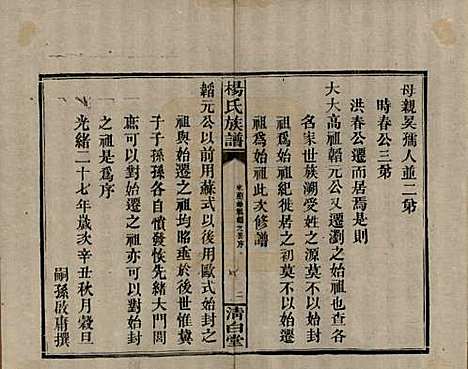 母親吳孺人並二弟
時春公三弟
洪春公遷而居焉是則
大大高祖韜元公又遷瀏之始祖也查各
名家世族溯受姓之源莫不以始封之
祖爲始祖紀徙居之初莫不以始遷之
祖爲始祖此次修譜
楊氏族譜
二
清白堂
韜元公以前用蘇式以後用歐式始封之
祖與始遷之祖均略垂於後世惟冀
子子孫孫各自憤發恢先緒大門閭
庶可以對始遷之祖亦可以對始封
之祖是爲序
光緒二十七年歲次辛丑秋月穀旦
嗣孫啟甫撰